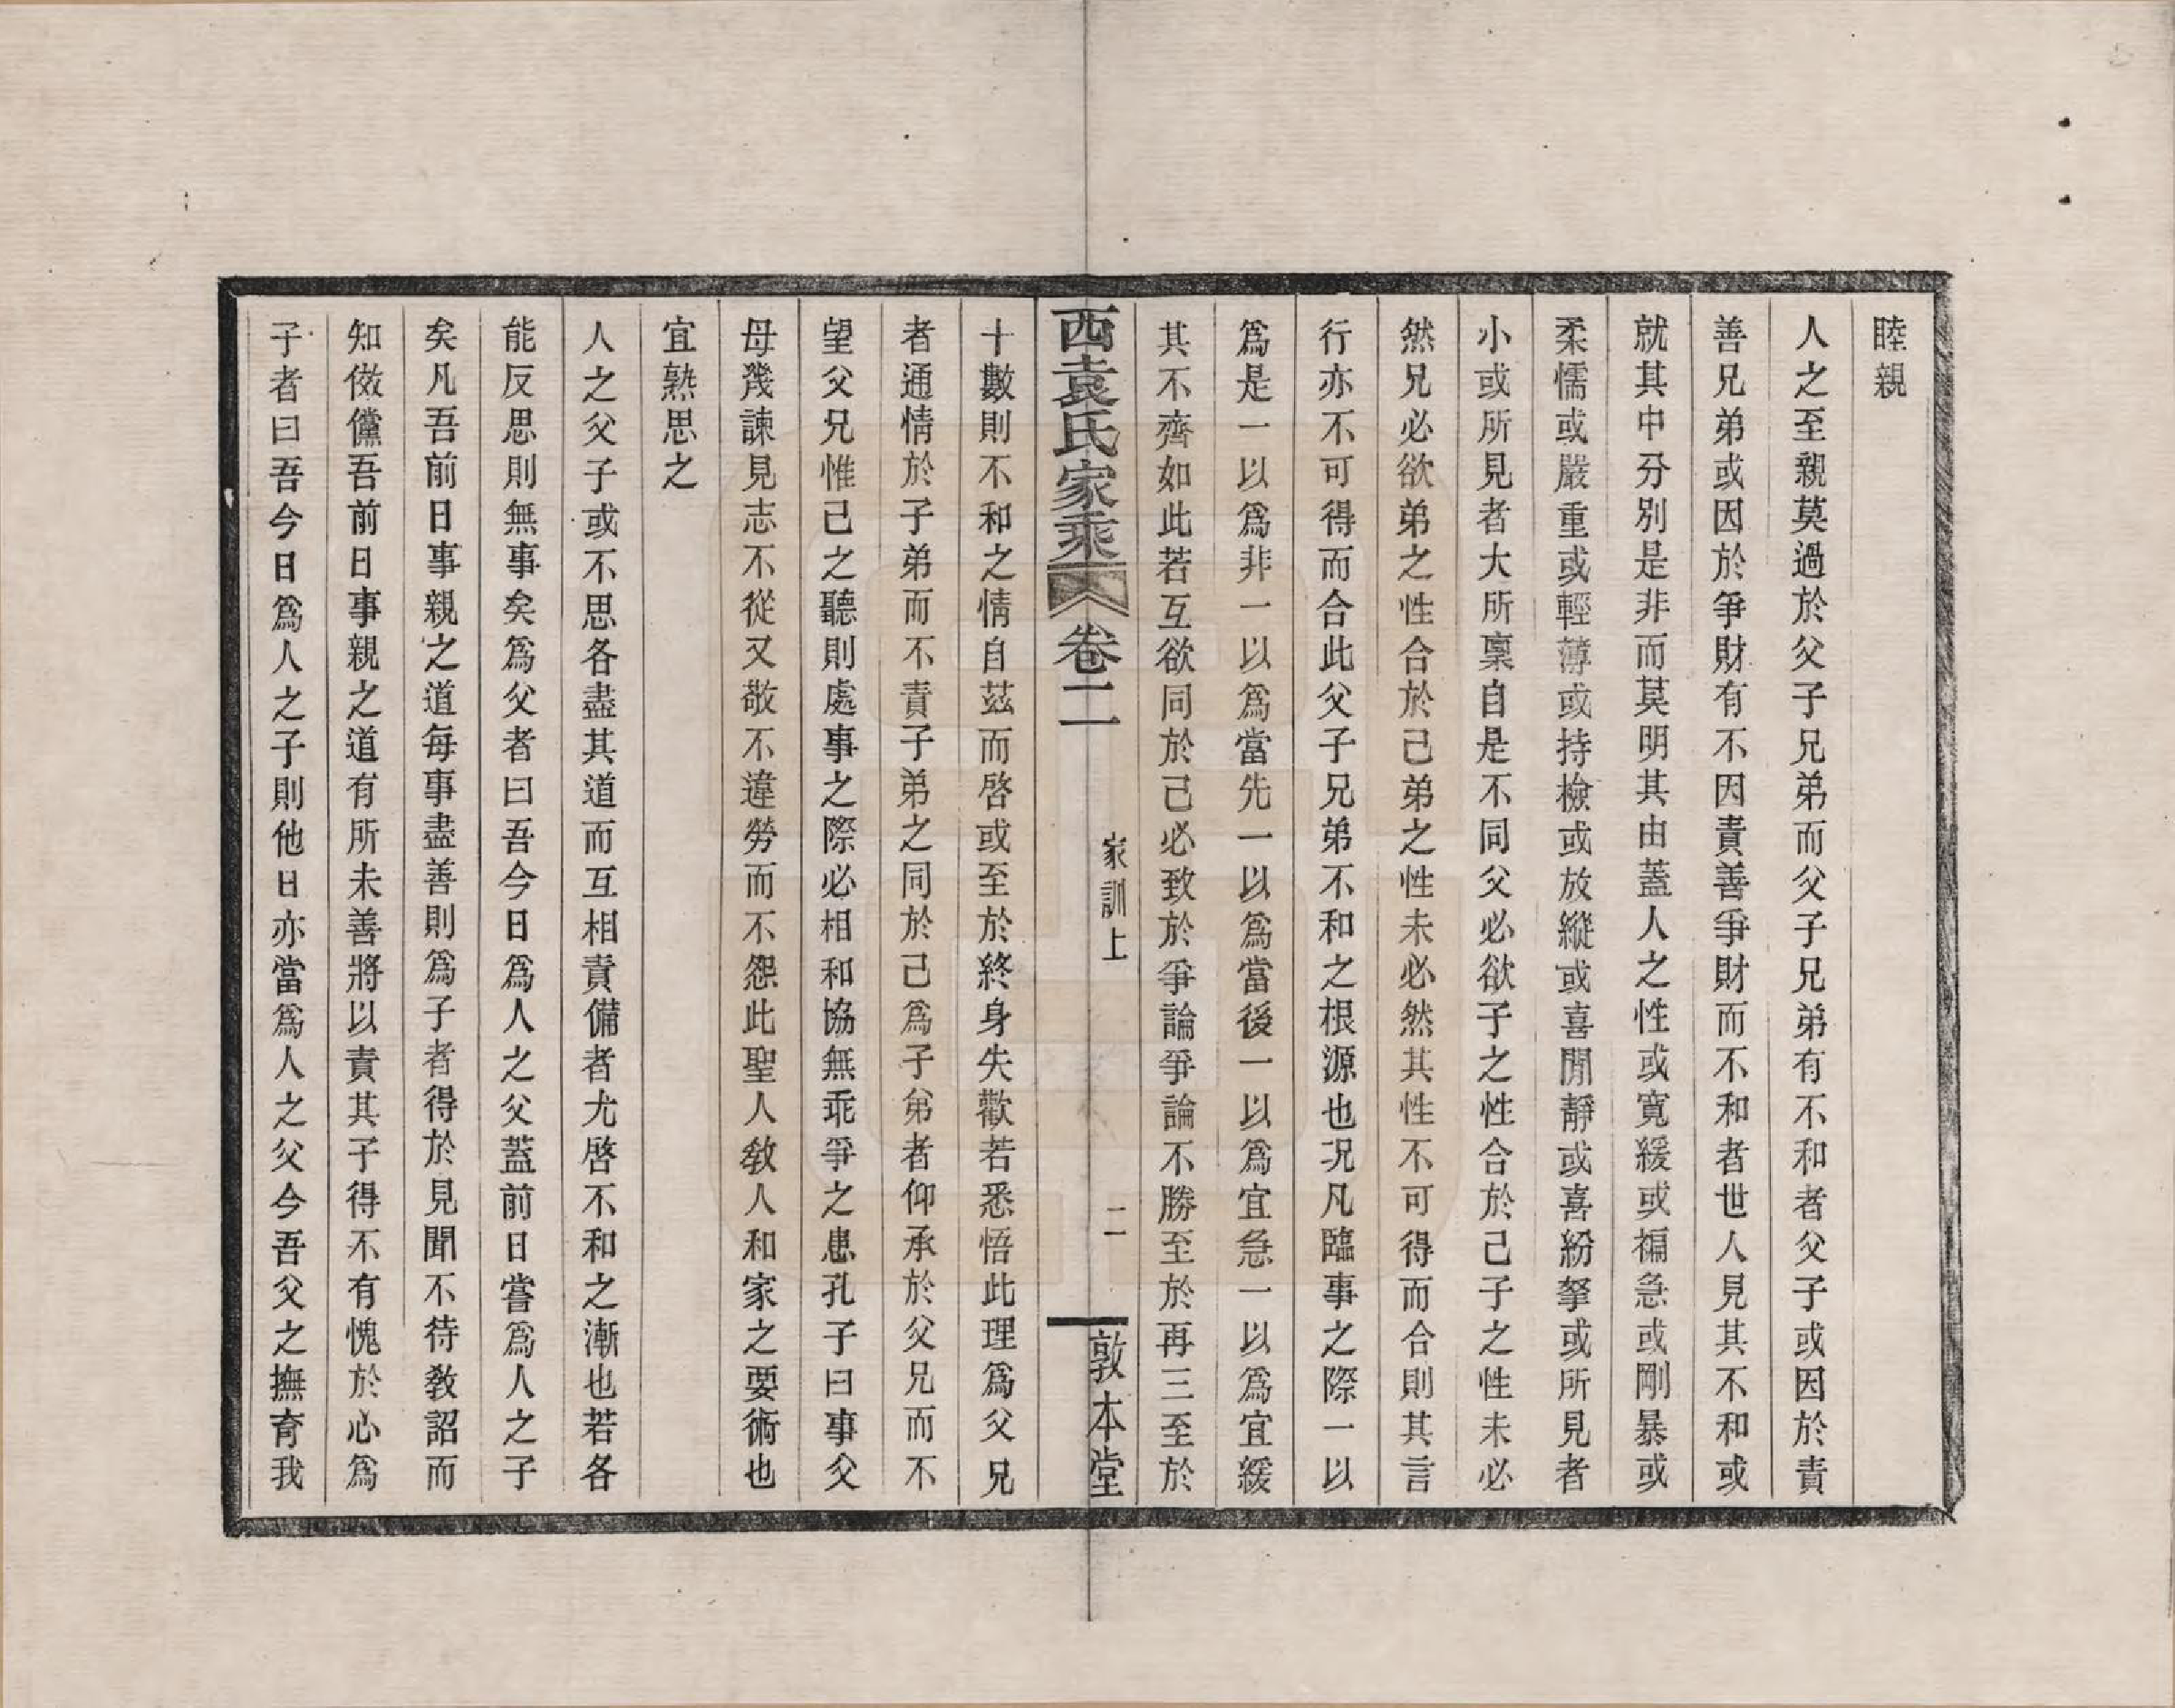 睦親
人之至親莫過於父子兄弟而父子兄弟有不和者父子或因於責
善兄弟或因於爭財有不因責善爭財而不和者世人見其不和或
就其中分別是非而莫明其由蓋人之性或寬緩或褊急或剛暴或
柔懦或嚴重或輕薄或持檢或放縱或喜閒靜或喜紛拏或所見者
小或所見者大所稟自是不同父必欲子之性合於己子之性未必
然兄必欲弟之性合於己弟之性未必然其性不可得而合則其言
行亦不可得而合此父子兄弟不和之根源也况凡臨事之際一以
爲是一以爲非一以爲當先一以爲當後一以爲宜急一以爲宜緩
其不齊如此若互欲同於己必致於爭論爭論不勝至於再三至於
西袁氏家乘 卷二 家訓上 二 敦本堂
十數則不和之情自茲而啓或至於終身失歡若悉悟此理爲父兄
者通情於子弟而不責子弟之同於己爲子弟者仰承於父兄而不
望父兄惟己之聽則處事之際必相和協無乖爭之患孔子曰事父
母幾諫見志不從又敬不違勞而不怨此聖人教人和家之要術也
宜熟思之
人之父子或不思各盡其道而互相責備者尤啓不和之漸也若各
能反思則無事矣爲父者曰吾今日爲人之父蓋前日嘗爲人之子
矣凡吾前日事親之道每事盡善則爲子者得於見聞不待教詔而
知傚儻吾前日事親之道有所未善將以責其子得不有愧於心爲
子者曰吾今日爲人之子則他日亦當爲人之父今吾父之撫育我